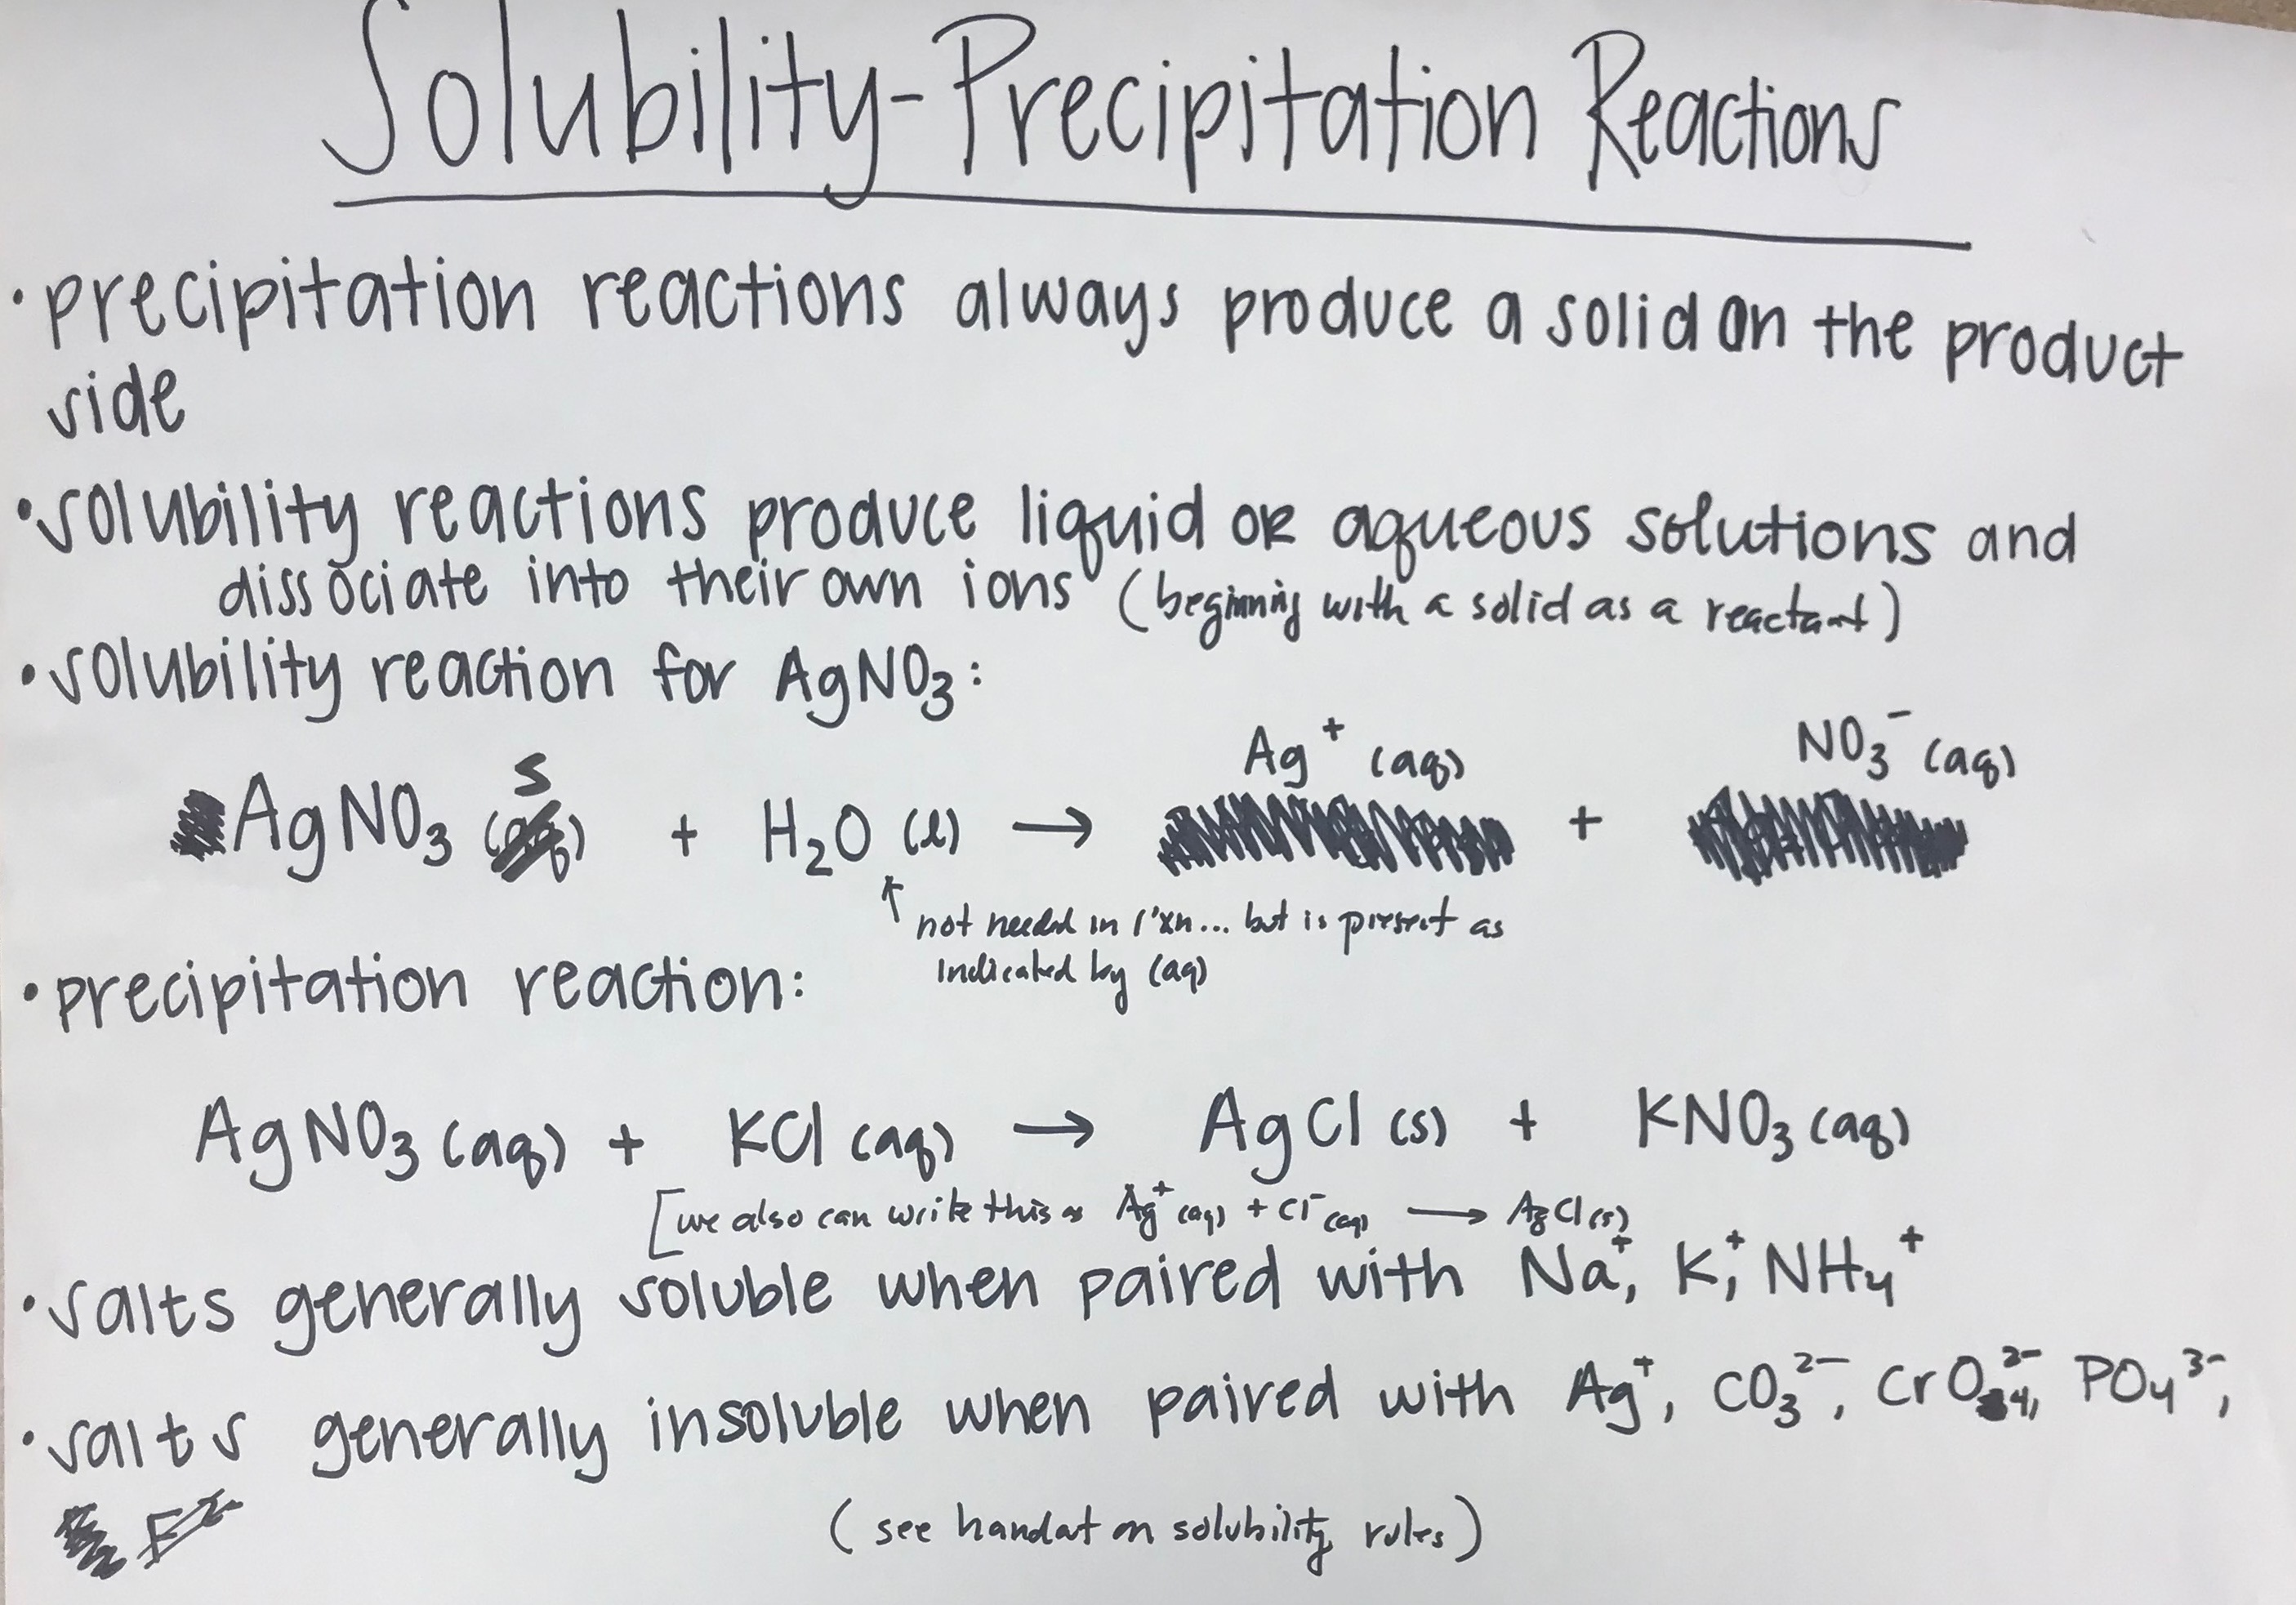 Solubility-Precipitation Reactions
• precipitation reactions always produce a solid on the product
side
• solubility reactions produce liquid OR aqueous solutions and
dissociate into their own ions (beginning with a solid as a reactant)
• solubility reaction for AgNO₃:
AgNO₃ (s) + H₂O (l) → Ag⁺ (aq) + NO₃⁻ (aq)
↑ not needed in r'xn... but is present as
indicated by (aq)
• precipitation reaction:
AgNO₃ (aq) + KCl (aq) → AgCl (s) + KNO₃ (aq)
[we also can write this as Ag⁺ (aq) + Cl⁻ (aq) → AgCl (s)
• salts generally soluble when paired with Na⁺, K⁺, NH₄⁺
• salts generally insoluble when paired with Ag⁺, CO₃²⁻, CrO₄²⁻, PO₄³⁻,
(see handout on solubility rules)